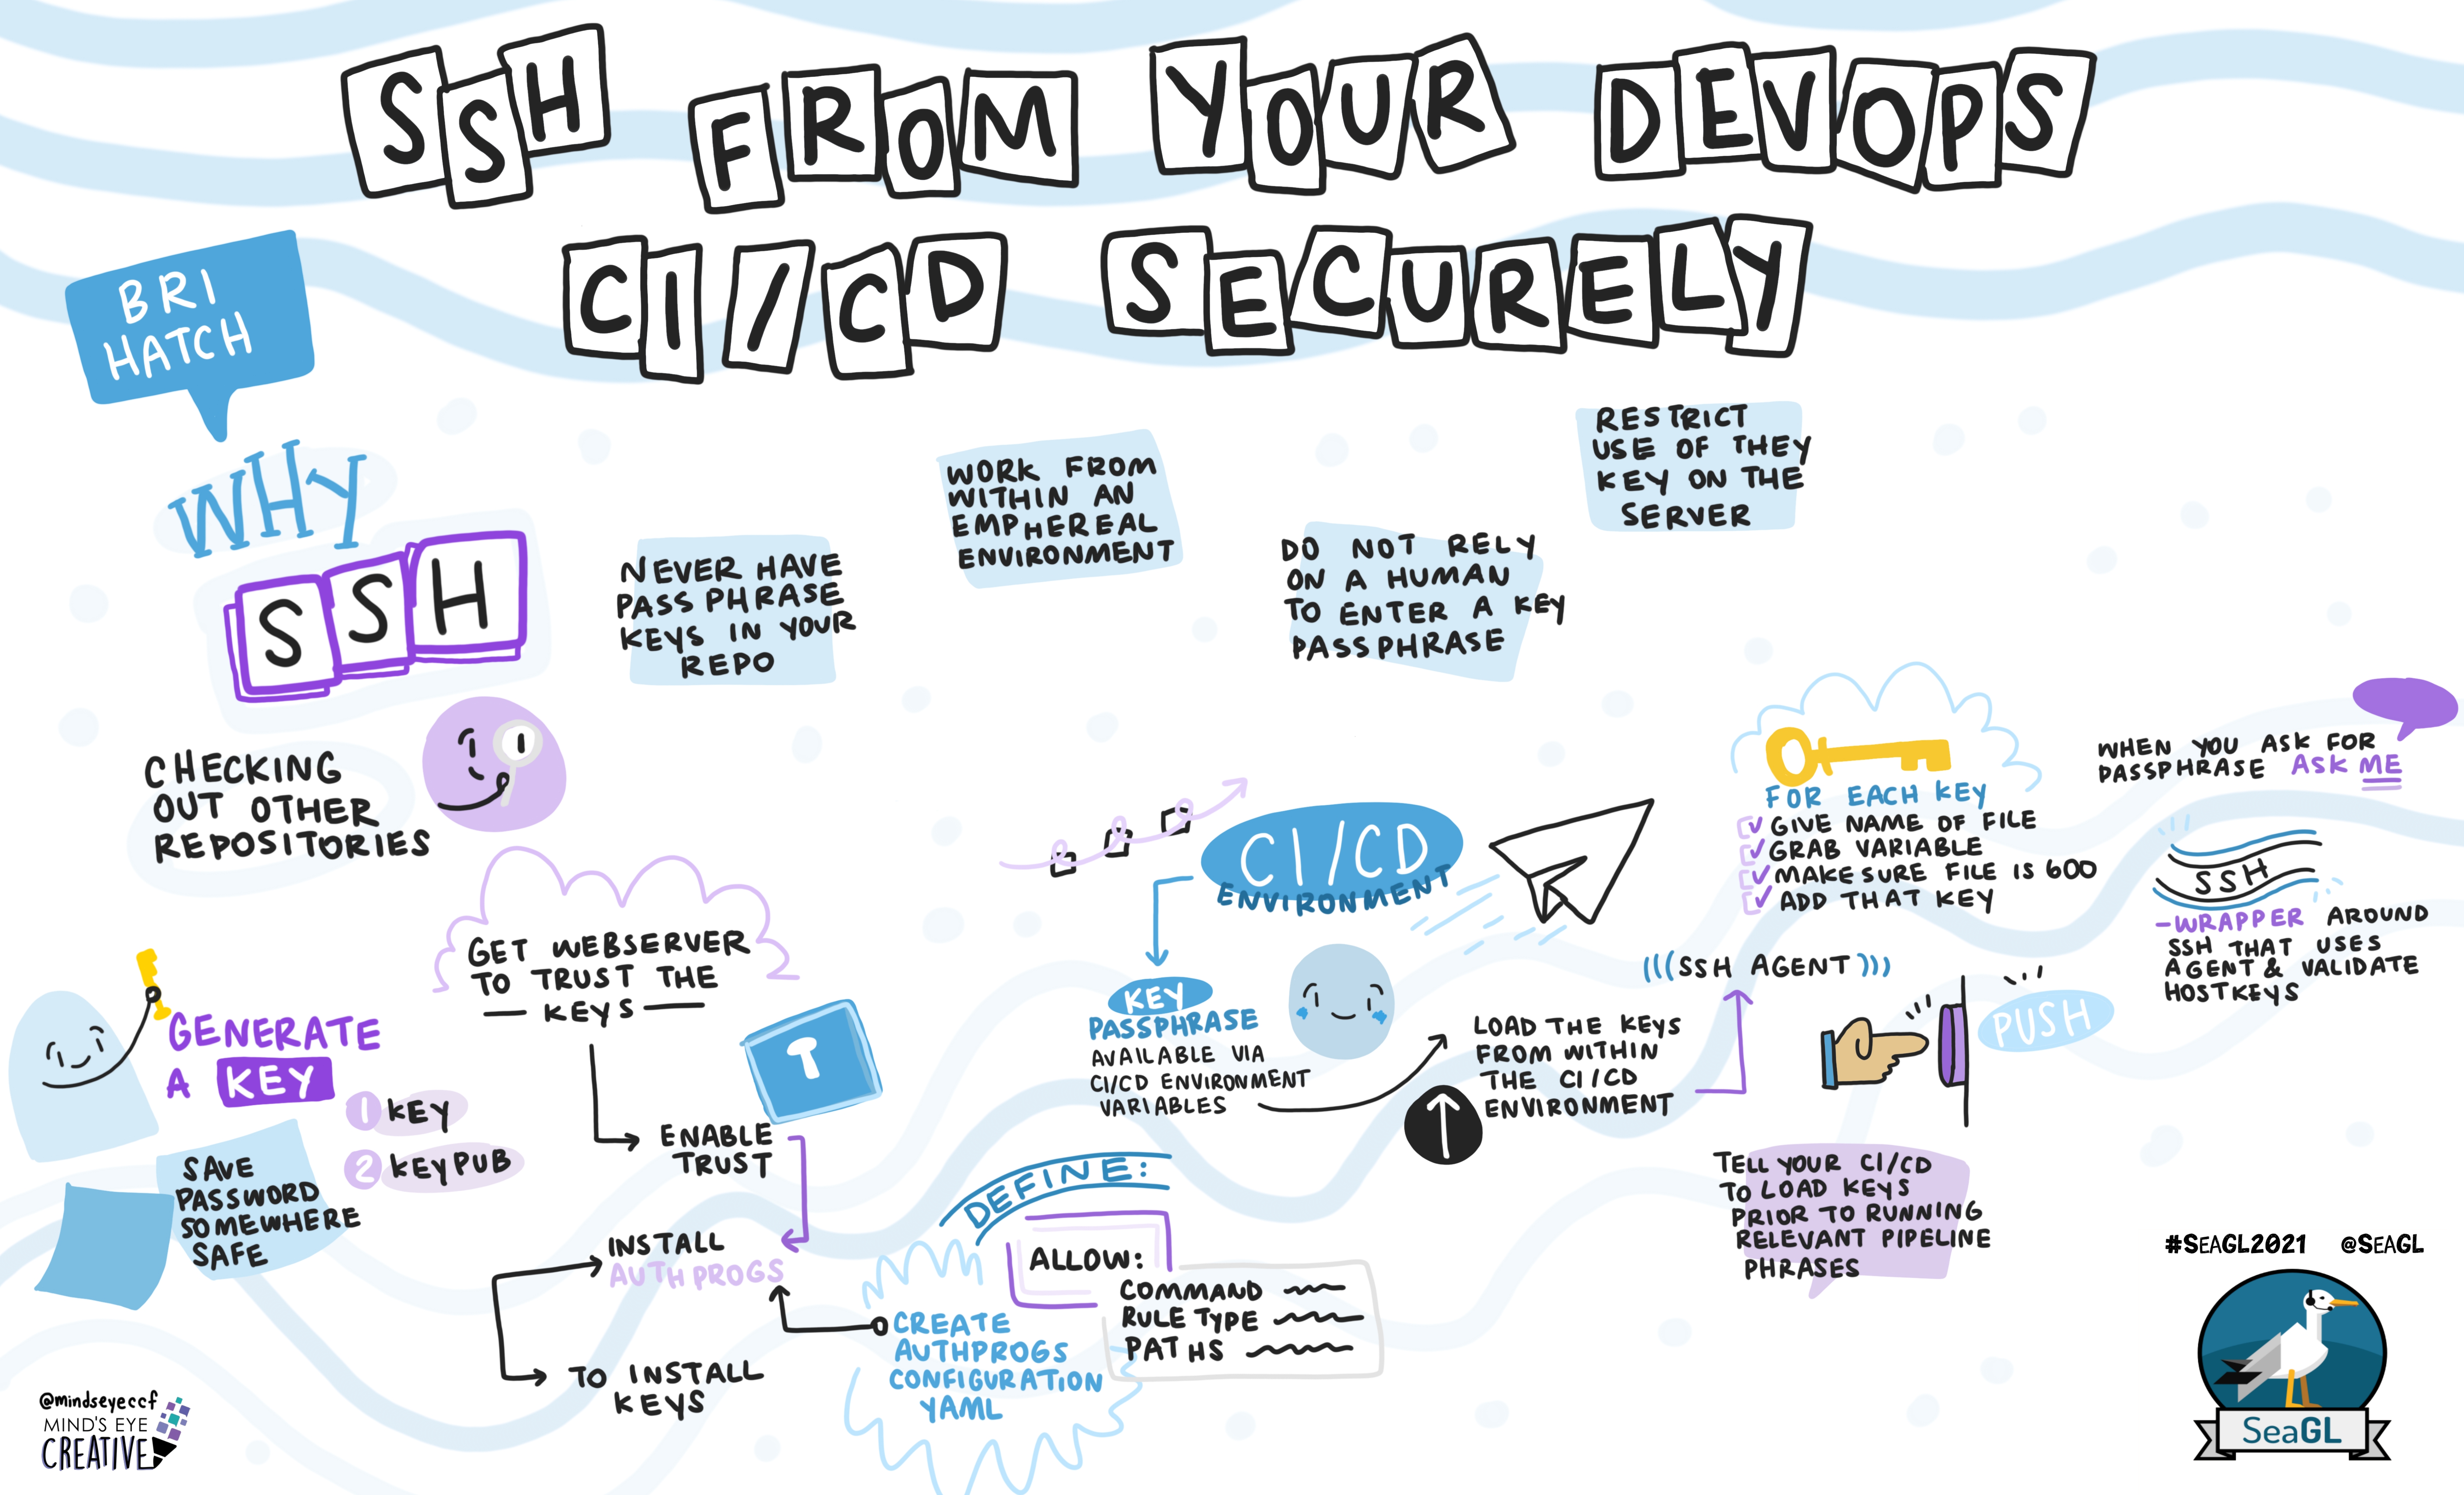 SSH FROM YOUR DEVOPS
CI/CD SECURELY
BRI
HATCH
WHY
SSH
CHECKING
OUT OTHER
REPOSITORIES
NEVER HAVE
PASS PHRASE
KEYS IN YOUR
REPO
WORK FROM
WITHIN AN
EMPHEREAL
ENVIRONMENT
DO NOT RELY
ON A HUMAN
TO ENTER A KEY
PASSPHRASE
RESTRICT
USE OF THEY
KEY ON THE
SERVER
GENERATE
A KEY
1 KEY
2 KEYPUB
SAVE
PASSWORD
SOMEWHERE
SAFE
GET WEBSERVER
TO TRUST THE
— KEYS —
T
ENABLE
TRUST
INSTALL
AUTH PROGS
TO INSTALL
KEYS
CREATE
AUTHPROGS
CONFIGURATION
YAML
DEFINE:
ALLOW:
COMMAND
RULE TYPE
PATHS
CI/CD
ENVIRONMENT
KEY
PASSPHRASE
AVAILABLE VIA
CI/CD ENVIRONMENT
VARIABLES
LOAD THE KEYS
FROM WITHIN
THE CI/CD
ENVIRONMENT
(((SSH AGENT)))
FOR EACH KEY
GIVE NAME OF FILE
GRAB VARIABLE
MAKE SURE FILE IS 600
ADD THAT KEY
PUSH
TELL YOUR CI/CD
TO LOAD KEYS
PRIOR TO RUNNING
RELEVANT PIPELINE
PHRASES
WHEN YOU ASK FOR
PASSPHRASE ASK ME
SSH
-WRAPPER AROUND
SSH THAT USES
AGENT & VALIDATE
HOSTKEYS
#SEAGL2021 @SEAGL
SeaGL
@mindseyeccf
MIND'S EYE
CREATIVE